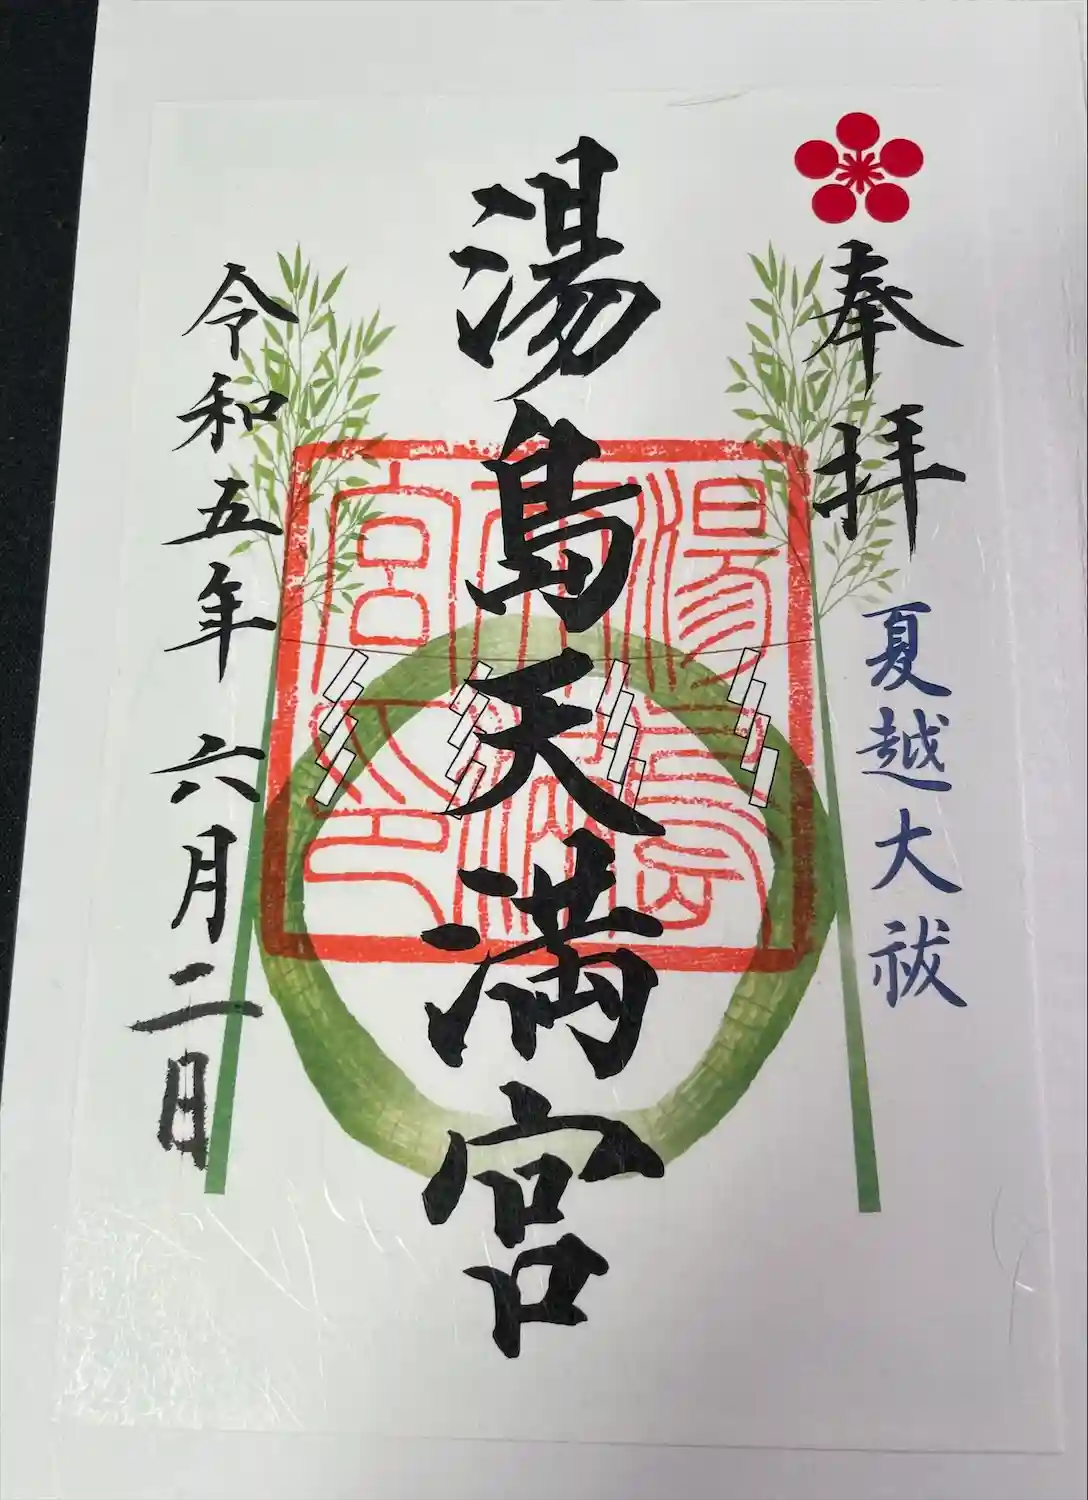 奉拝
夏越大祓
湯島天満宮
湯島
天満
宮印
令和五年六月二日